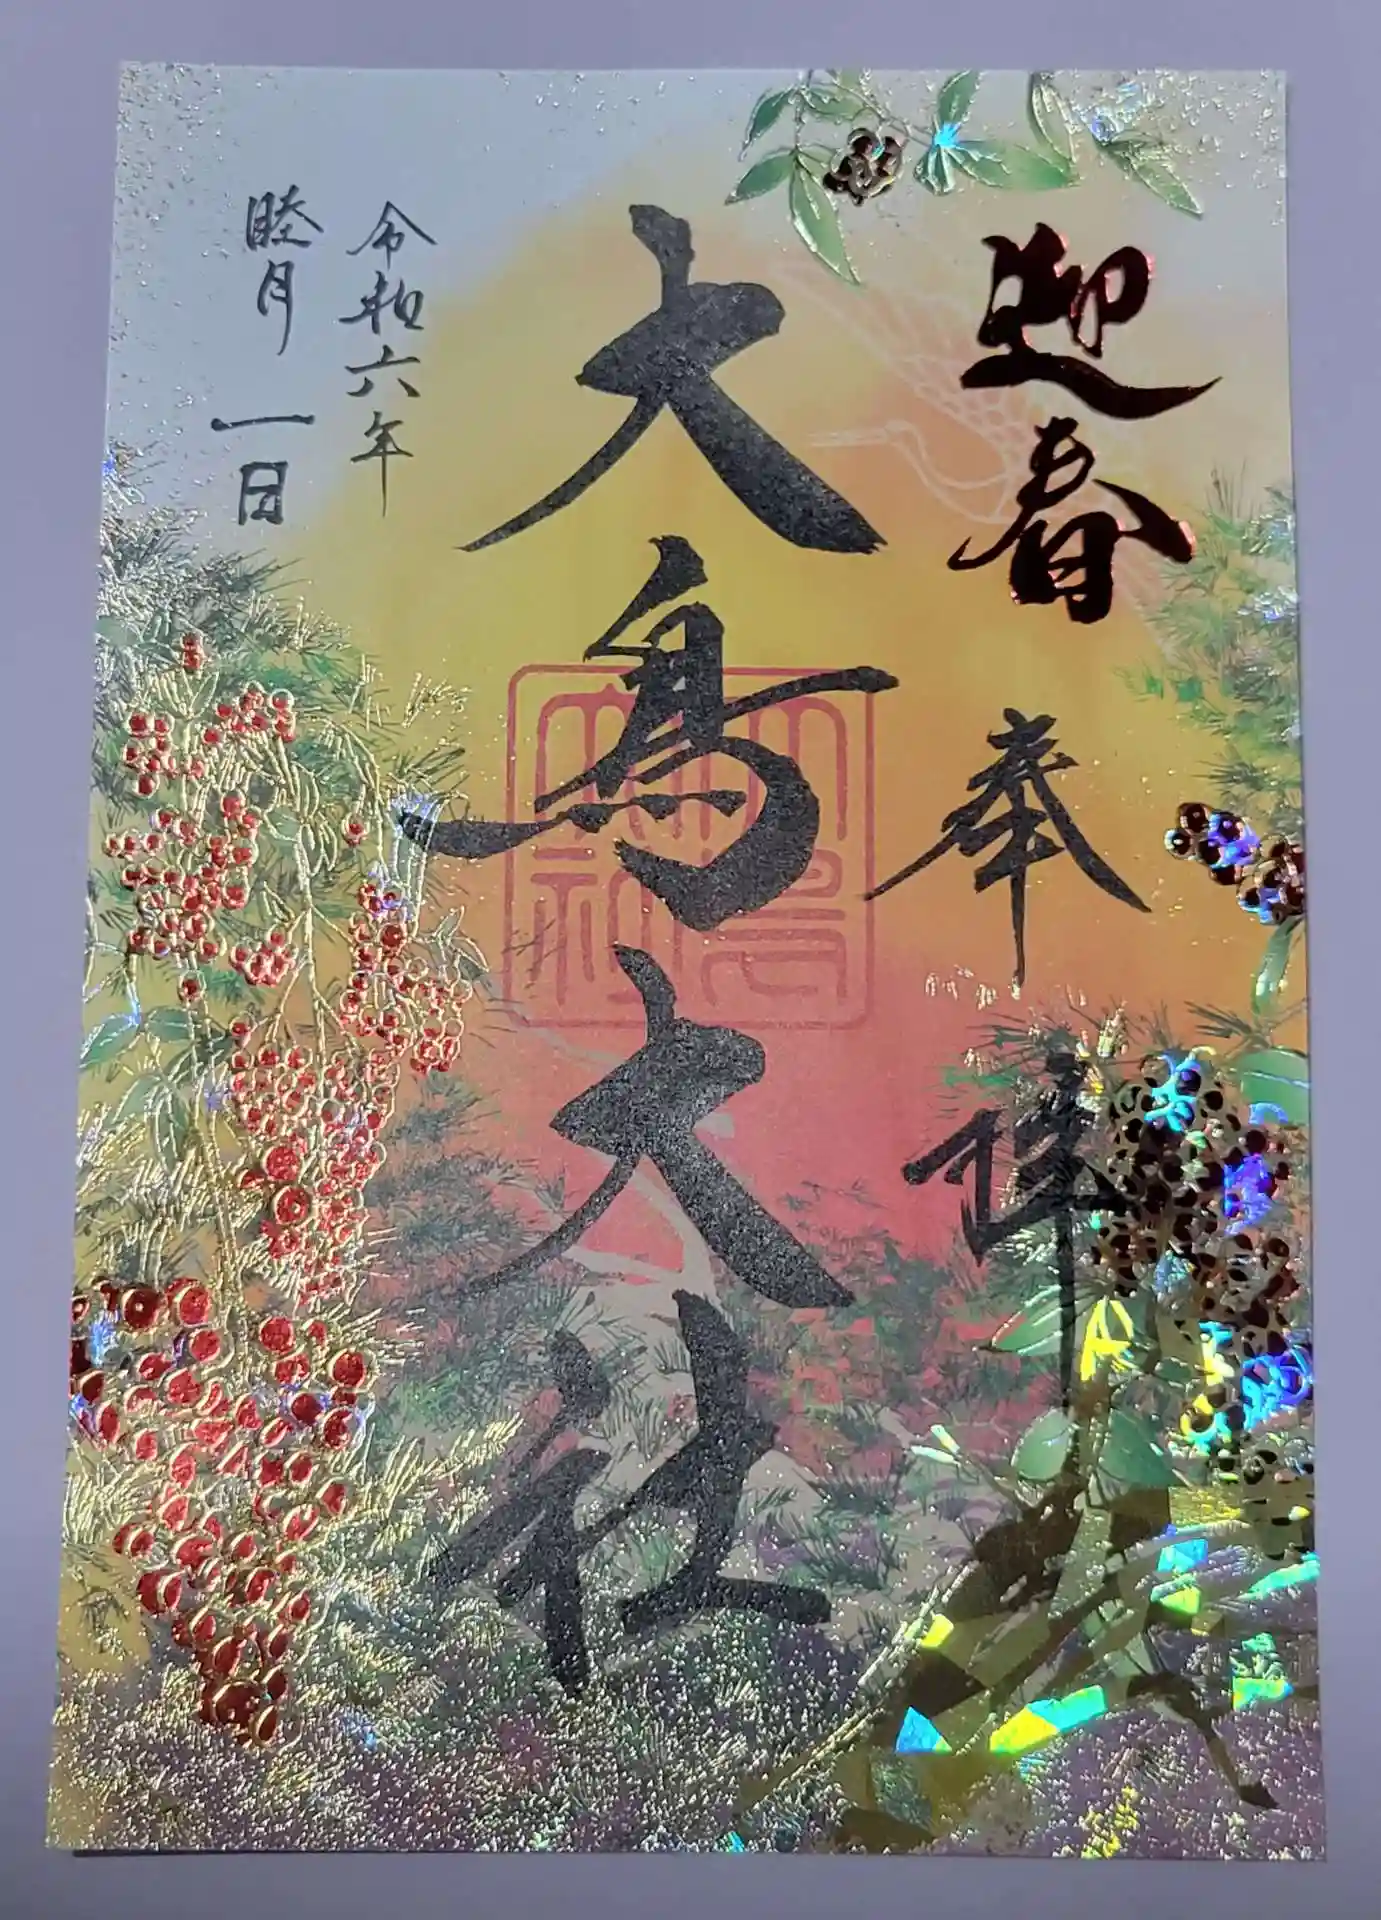 迎春
奉拝
大鳥大社
大鳥大社
令和六年
睦月一日